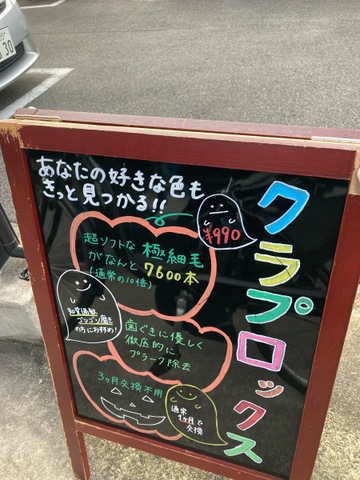 クラプロックス
あなたの好きな色も
きっと見つかる!!
¥990
超ソフトな 極細毛
がなんと 7600本
(通常の10倍)
知覚過敏
ゴシゴシ磨き
の方におすすめ!
歯ぐきに優しく
徹底的に
プラーク除去
3ヶ月交換不用
通常
1ヶ月で
交換
30